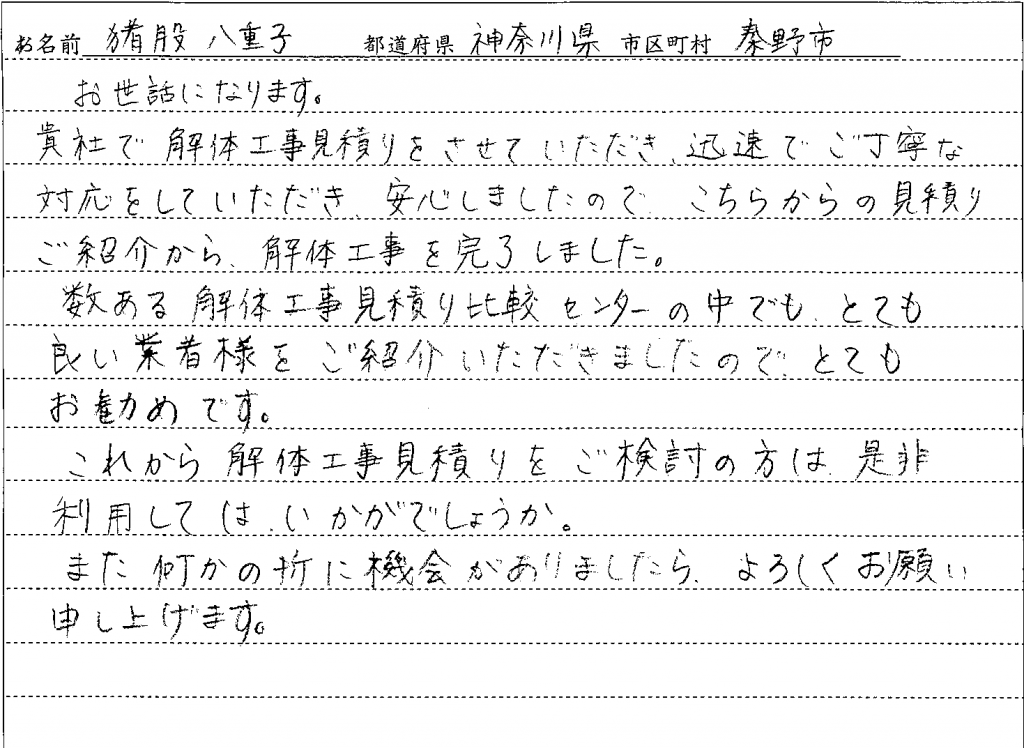 お名前 猪股 八重子 都道府県 神奈川県 市区町村 秦野市
お世話になります。
貴社で解体工事見積りをさせていただき、迅速でご丁寧な
対応をしていただき、安心しましたので、こちらからの見積り
ご紹介から、解体工事を完了しました。
数ある解体工事見積り比較センターの中でも、とても
良い業者様をご紹介いただきましたので、とても
お勧めです。
これから解体工事見積りをご検討の方は、是非
利用しては、いかがでしょうか。
また何かの折に機会がありましたら、よろしくお願い
申し上げます。